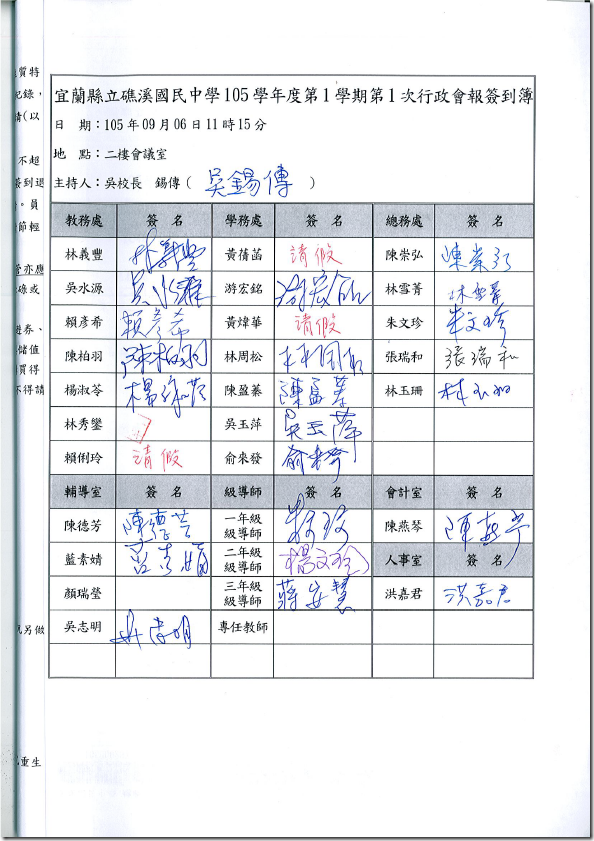 質特
記錄，
請(以
不超
簽到退
。員
節輕
管亦應
碌或
遊券、
儲值
買得
不得請
另做
重生
宜蘭縣立礁溪國民中學105學年度第1學期第1次行政會報簽到簿
日 期：105年09月06日11時15分
地 點：二樓會議室
主持人：吳校長 錫傳（吳錫傳）
教務處 簽 名 學務處 簽 名 總務處 簽 名
林義豐 林義豐 黃蒨菡 請假 陳崇弘 陳崇弘
吳水源 吳水源 游宏銘 游宏銘 林雪菁 林雪菁
賴彥希 賴彥希 黃煒華 請假 朱文珍 朱文珍
陳柏羽 陳柏羽 林周松 林周松 張瑞和 張瑞和
楊淑苓 楊淑苓 陳盈蓁 陳盈蓁 林玉珊 林玉珊
林秀鑾 吳玉萍 吳玉萍
賴俐玲 請假 俞來發 俞來發
輔導室 簽 名 級導師 簽 名 會計室 簽 名
陳德芳 陳德芳 一年級級導師 陳燕琴 陳燕琴
藍素婧 二年級級導師 人事室 簽 名
顏瑞瑩 三年級級導師 蔣安慧 洪嘉君 洪嘉君
吳志明 吳志明 專任教師